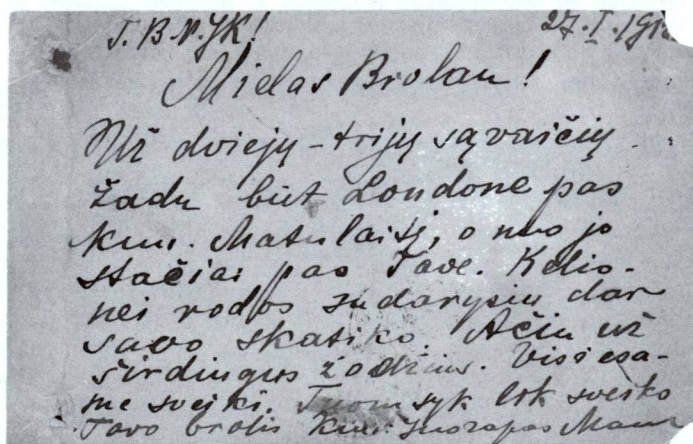 T. B. N. JK! 27.I.191
Mielas Brolau!
Už dviejų-trijų sąvaičių
žadu būt Londone pas
kun. Matulaitį, o nuo jo
stačiai pas Tave. Kelio-
nei rodos sudarysiu dar
savo skatiko. Ačiu už
širdingus žodžius. Visi esa-
me sveiki. Tuom syk lik sveiks
Tavo brolis Kun. Juozapas